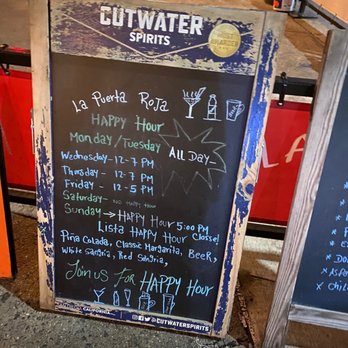 CUTWATER
SPIRITS
MOST
AWARDED
La Puerta Roja
Happy Hour
Monday/Tuesday
All Day
Wednesday - 12-7 PM
Thursday - 12-7 PM
Friday - 12-5 PM
Saturday - no happy hour
Sunday → Happy Hour 5:00 PM
Lista Happy Hour Closed
Piña Colada, Classic Margarita, Beer,
White Sangria, Red Sangria,
Join us for Happy Hour
CALIFORNIA
@CUTWATERSPIRITS